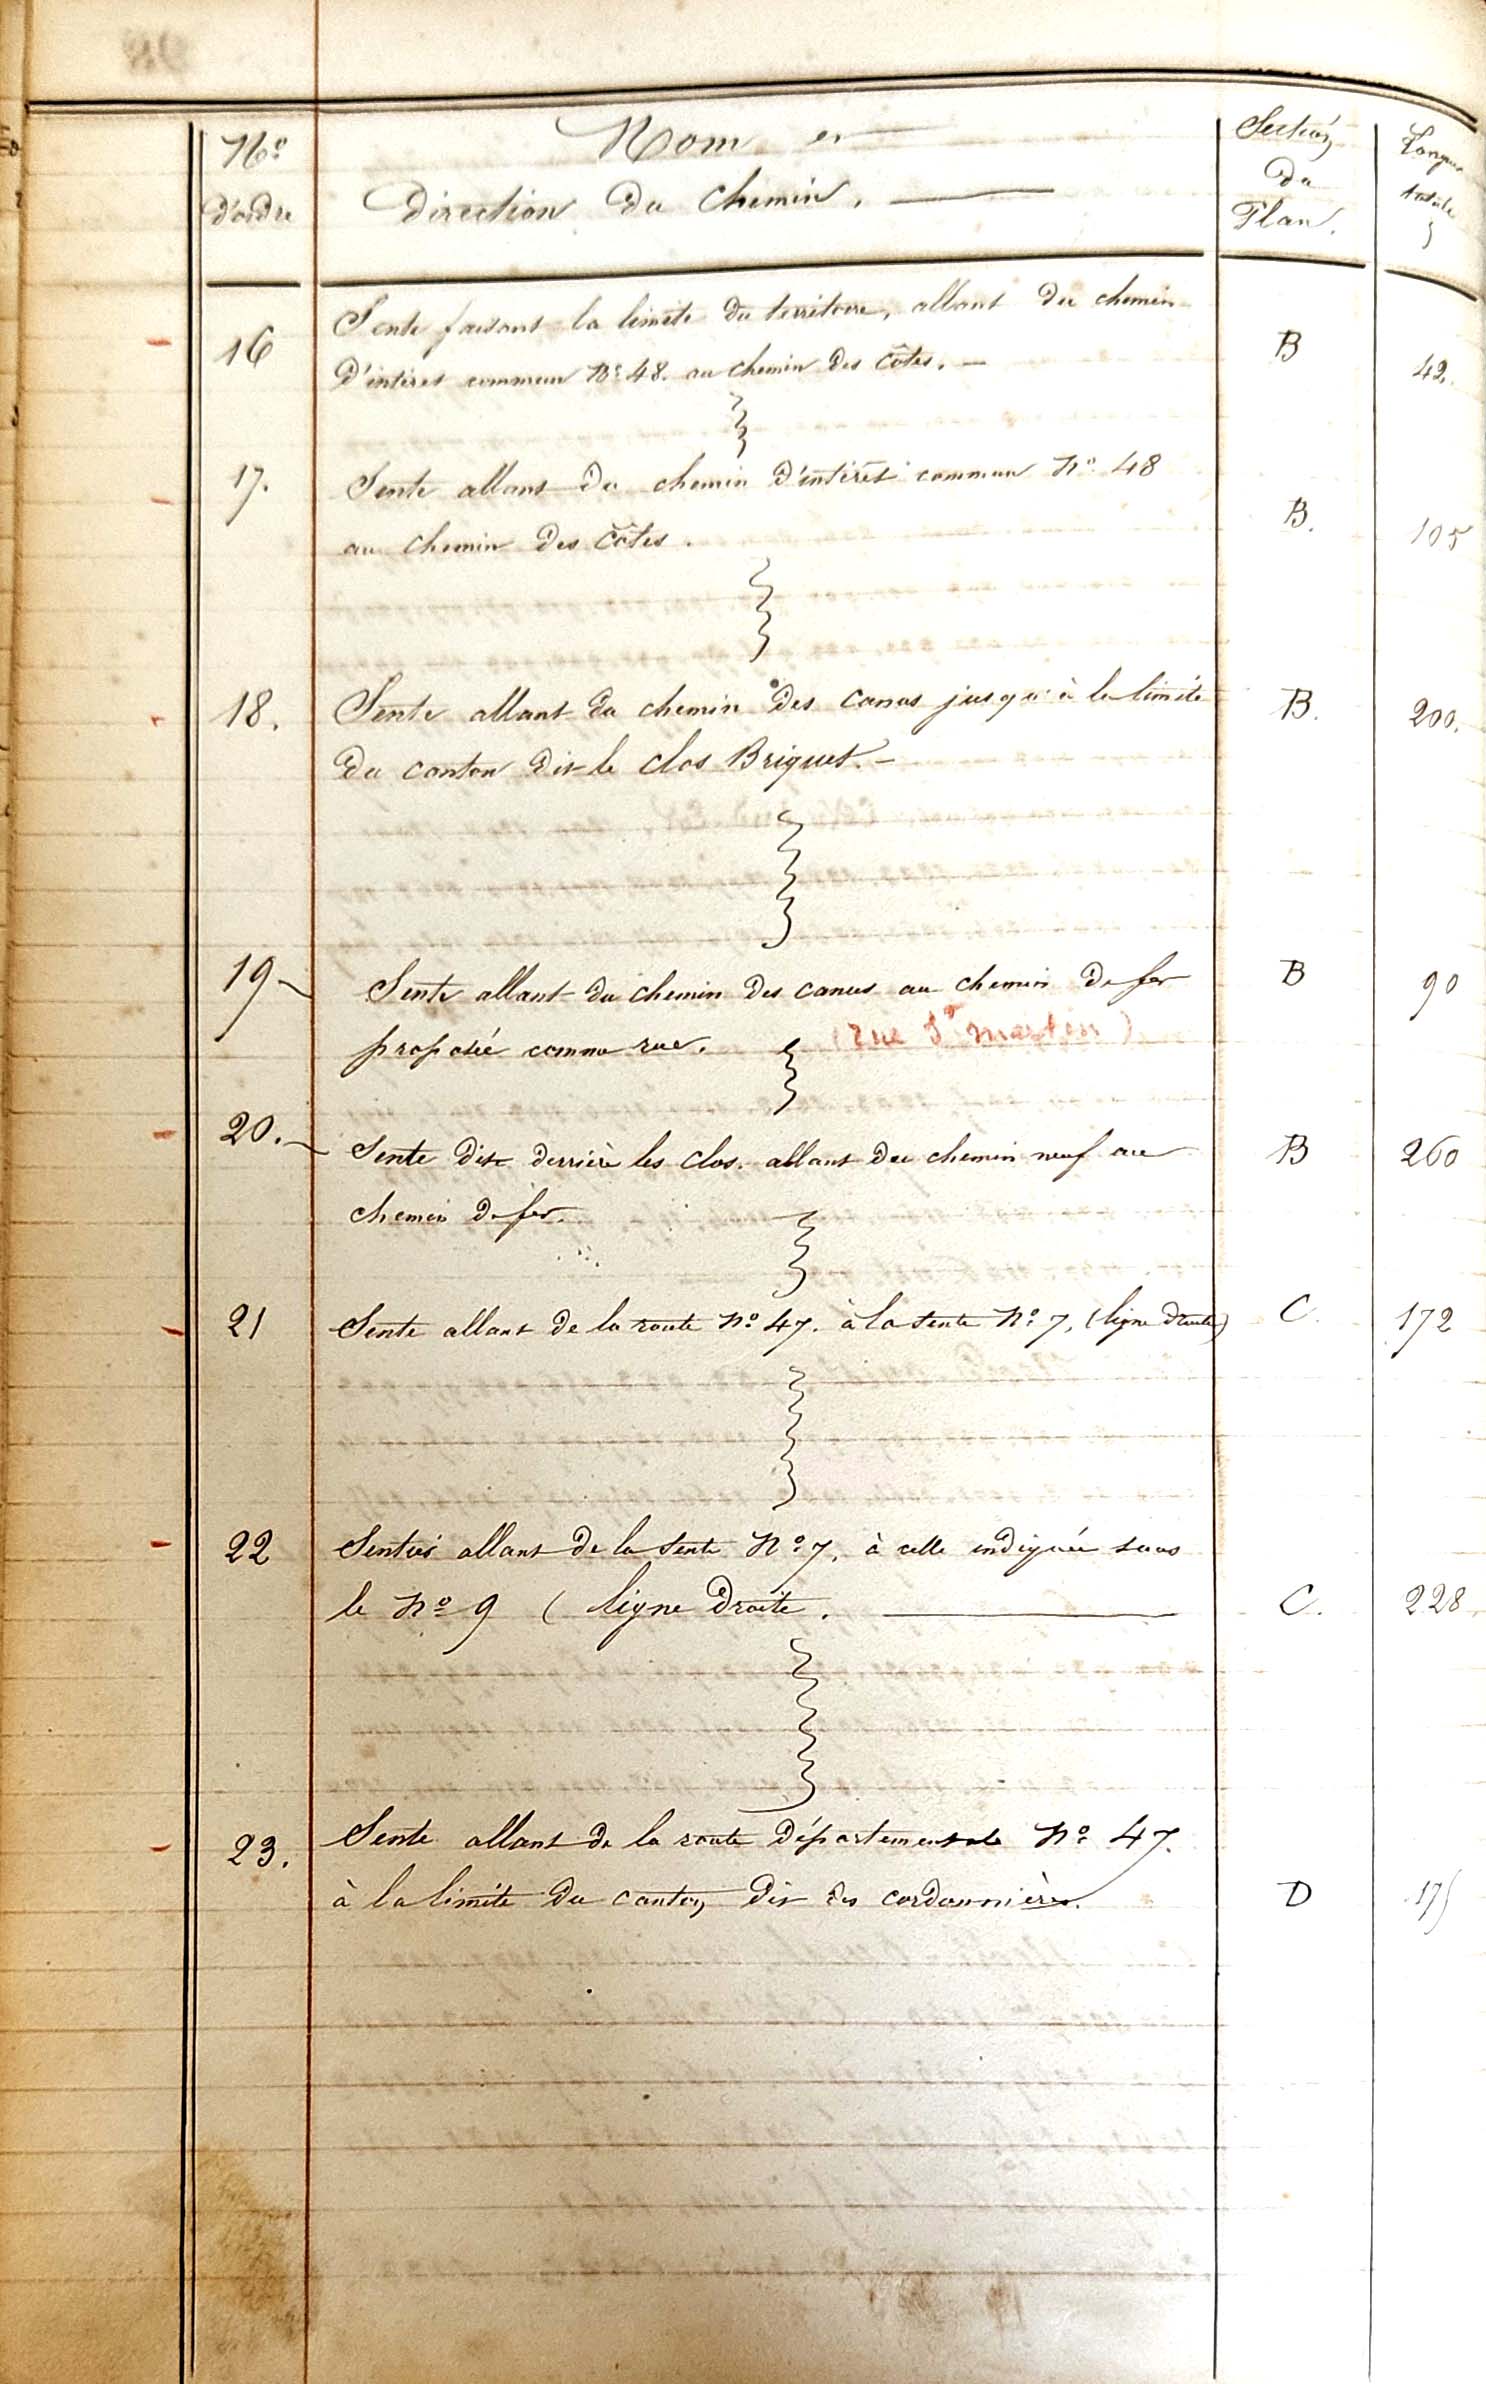 Nº d'ordre
Nom et
direction du Chemin.
Section du Plan.
Longueur totale
16 Sente faisant la limite du territoire, allant du chemin B 42.
d'intéret commun Nº 48. au chemin des Côtes. —
17. Sente allant du chemin d'intérêt commun Nº 48 B. 105
au chemin des Côtes.
18. Sente allant du chemin des Canus jusqu'à la limite B. 200.
du canton dit le clos Briquet. —
19 Sente allant du chemin des canus au chemin de fer B 90
proposée comme rue. (rue St Martin)
20. Sente dite derrière les clos. allant du chemin neuf au B 260
chemin de fer.
21 Sente allant de la route Nº 47. à la sente Nº 7, (ligne droite) C. 172
22 allant de la sente Nº 7, à celle indiquée sous
le Nº 9 ( ligne droite. C. 228
23. Sente allant de la route départementale Nº 47.
à la limite du canton dit des cordonnières. D 175